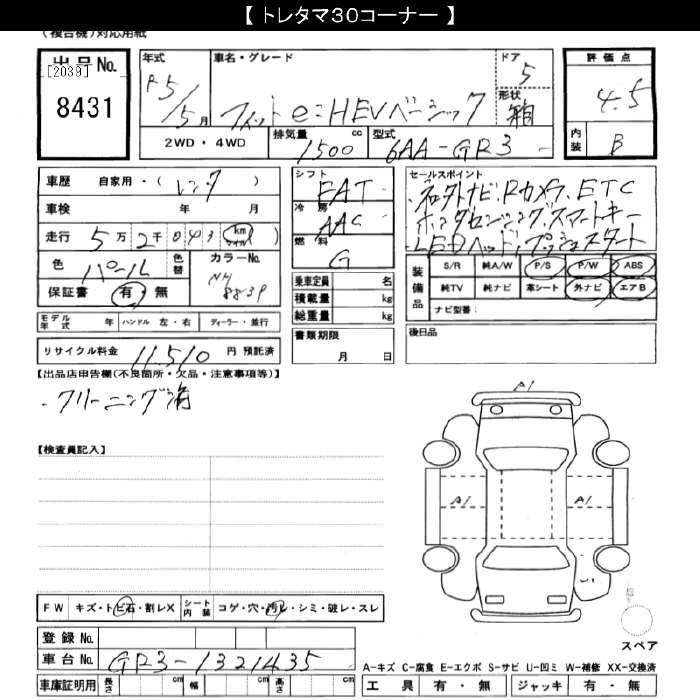 【 トレタマ30コーナー 】
(複合機)対応用紙
出品No.
[2039]
8431
年式
R5/5月
車名・グレード
フィット e:HEVベーシック
ドア
5
形状
箱
評価点
4.5
内装
B
2WD ・ 4WD
排気量 1500 cc
型式 6AA-GR3
車歴 自家用・( レンタ )
車検 年 月
走行 5万2千043 (km マイル)
色 パール 色替
カラーNo. NH883P
保証書 有・無
シフト FAT
冷房 AAC
燃料 G
乗車定員 名
積載量 kg
総重量 kg
書類期限
月 日
セールスポイント
・ネクストナビ、Rカメラ、ETC
・ホンダセンシング、スマートキー
・LEDヘッド、プッシュスタート
装備品
S/R 純A/W P/S P/W ABS
純TV 純ナビ 革シート 外ナビ エアB
ナビ型番:
後日品
モデル年式 年 ハンドル 左・右 ディーラー・並行
リサイクル料金 11,510 円 預託済
【出品店申告欄(不良箇所・欠品・注意事項等)】
・クリーニング済
【検査員記入】
A1
A1
A1
FW キズ・トビ石・割レX シート内装 コゲ・穴・汚レ・シミ・破レ・スレ
登録No.
車台No. GR3-1321435
車庫証明用 長さ cm 幅 cm 高さ cm
スペア
A-キズ C-腐食 E-エクボ S-サビ U-凹ミ W-補修 XX-交換済
工具 有・無 ジャッキ 有・無